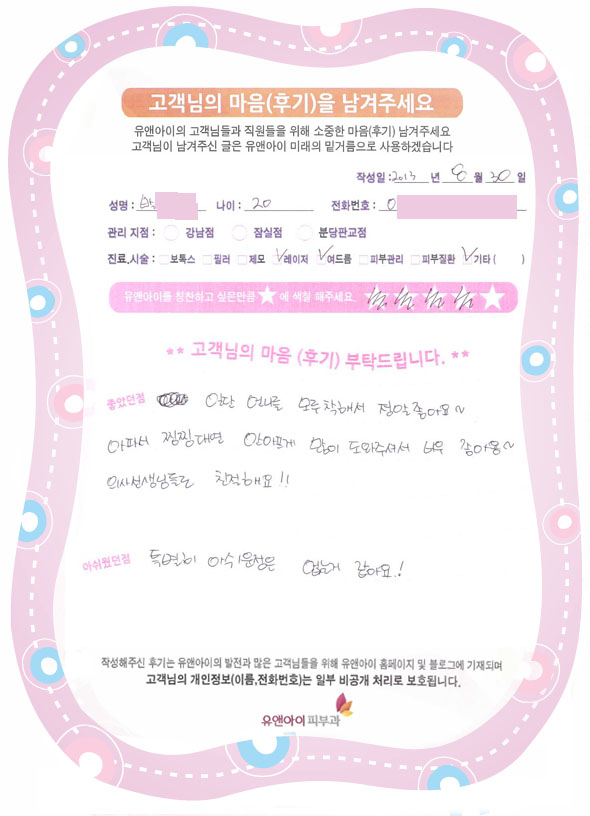 고객님의 마음(후기)을 남겨주세요
유앤아이의 고객님들과 직원들을 위해 소중한 마음(후기) 남겨주세요
고객님이 남겨주신 글은 유앤아이 미래의 밑거름으로 사용하겠습니다
작성일 : 2013 년 8 월 30 일
성명 : 박 나이 : 20 전화번호 : 0
관리 지점 : 강남점 잠실점 분당판교점
진료.시술 : 보톡스 필러 제모 레이저 여드름 피부관리 피부질환 기타 ( )
유앤아이를 칭찬하고 싶은만큼 ★ 에 색칠 해주세요.
** 고객님의 마음 (후기) 부탁드립니다. **
좋았던점 일단 언니들 모두 착해서 정말 좋아요~
아파서 찡찡대면 안아프게 많이 도와주셔서 너무 좋아용~
의사선생님들도 친절해요!!
아쉬웠던점 특별히 아쉬운점은 없는거 같아요.!
작성해주신 후기는 유앤아이의 발전과 많은 고객님들을 위해 유앤아이 홈페이지 및 블로그에 기재되며
고객님의 개인정보(이름,전화번호)는 일부 비공개 처리로 보호됩니다.
유앤아이피부과